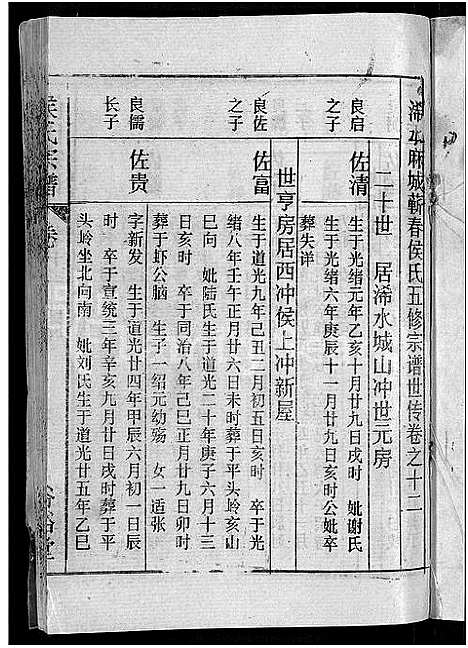 浠水麻城蕲春侯氏五修宗谱世传卷之十二
二十世 居浠水城山冲世元房
良启之子
佐清
生于光绪元年乙亥十月廿九日戌时 妣谢氏
生于光绪六年庚辰十一月廿九日亥时公妣卒
葬失详
世亨房居西冲侯上冲新屋
良佐之子
佐富
生于道光九年己丑二月初五日亥时 卒于光
绪八年壬午正月廿六日未时葬于平头岭亥山
巳向 妣陆氏生于道光二十年庚子六月十三
日亥时 卒于同治八年己巳正月廿九日卯时
葬于虾公脑 生子一绍元幼殇 女一适张
良儒长子
佐贵
字新发 生于道光廿四年甲辰六月初一日辰
时 卒于宣统三年辛亥九月廿日戌时葬于平
头岭坐北向南 妣刘氏生于道光廿五年乙巳
侯氏宗谱
卷